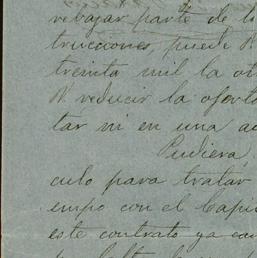 rebajar parte de l
trucciones, puede V.
treinta mil la ot
V. reducir la oferta
tar ni en una a
Pudiera,
culo para tratar
empo con el Capi
este contrato ya ca